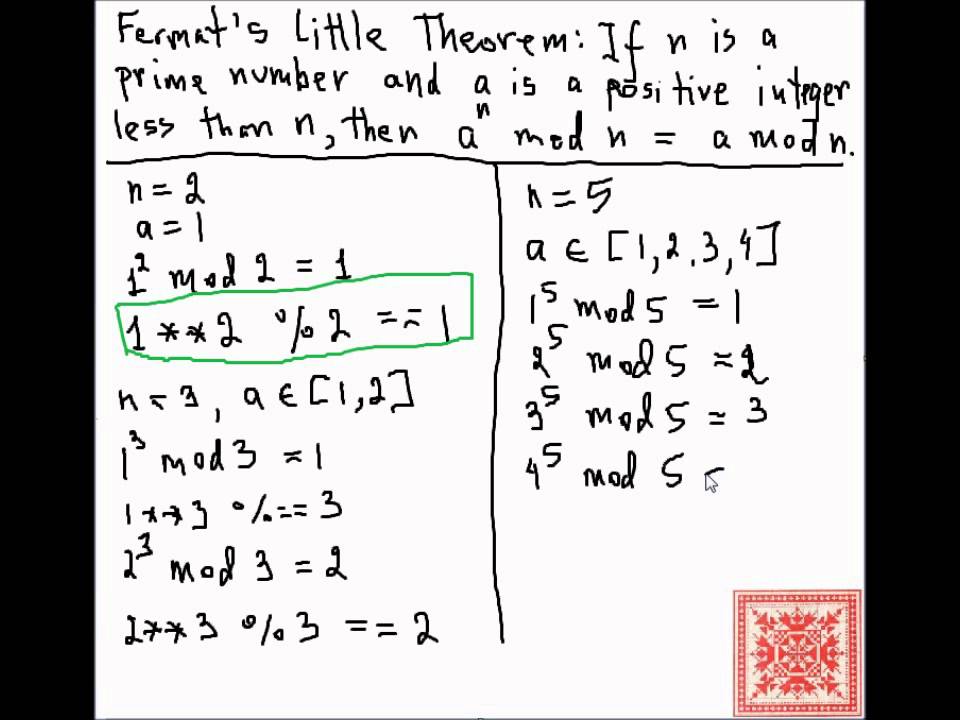 Fermat's Little Theorem: If n is a
prime number and a is a positive integer
less than n, then aⁿ mod n = a mod n.
n = 2
a = 1
1² mod 2 = 1
1 ** 2 % 2 == 1
n = 3, a ∈ [1,2]
1³ mod 3 = 1
1 ** 3 % == 3
2³ mod 3 = 2
2**3 % 3 == 2
n = 5
a ∈ [1,2,3,4]
1⁵ mod 5 = 1
2⁵ mod 5 = 2
3⁵ mod 5 = 3
4⁵ mod 5 =